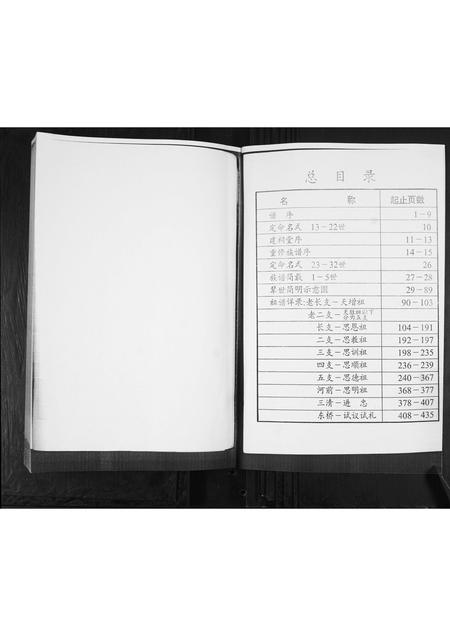 总 目 录
名 称 起止页数
谱 序 1-9
定命名式 13-22世 10
建祠堂序 11-13
重修族谱序 14-15
定命名式 23-32世 26
族谱简载 1-5世 27-28
辈世简明示意图 29-89
祖谱详录:老长支-天增祖 90-103
老二支-天胜祖以下分为五支
长支-思恩祖 104-191
二支-思教祖 192-197
三支-思训祖 198-235
四支-思顺祖 236-239
五支-思德祖 240-367
河前-思明祖 368-377
三清-通 忠 378-407
东桥-试议试礼 408-435